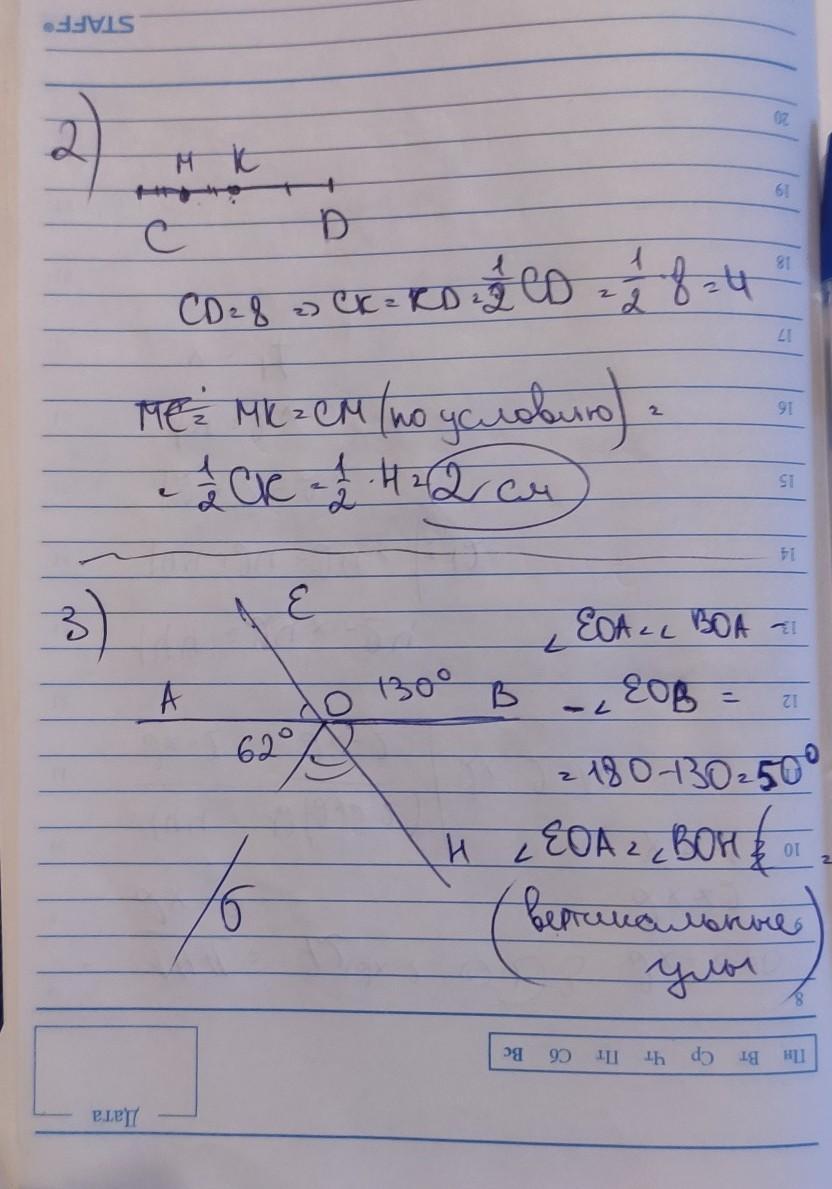 STAFF®
20
2)
М К
19
C D
18
CD=8 => CK=KD=1/2CD=1/2·8=4
17
MC= MK=CM(по условию)=
16
=1/2CK=1/2·4=2 см
15
14
3)
E
∠EOA=∠BOA -
13
A O 130° B
-∠EOB =
12
62°
=180-130=50°
H
∠EOA=∠BOH
10
=
б
(вертикальные
углы)
8
Пн Вт Ср Чт Пт Сб Вс
Дата